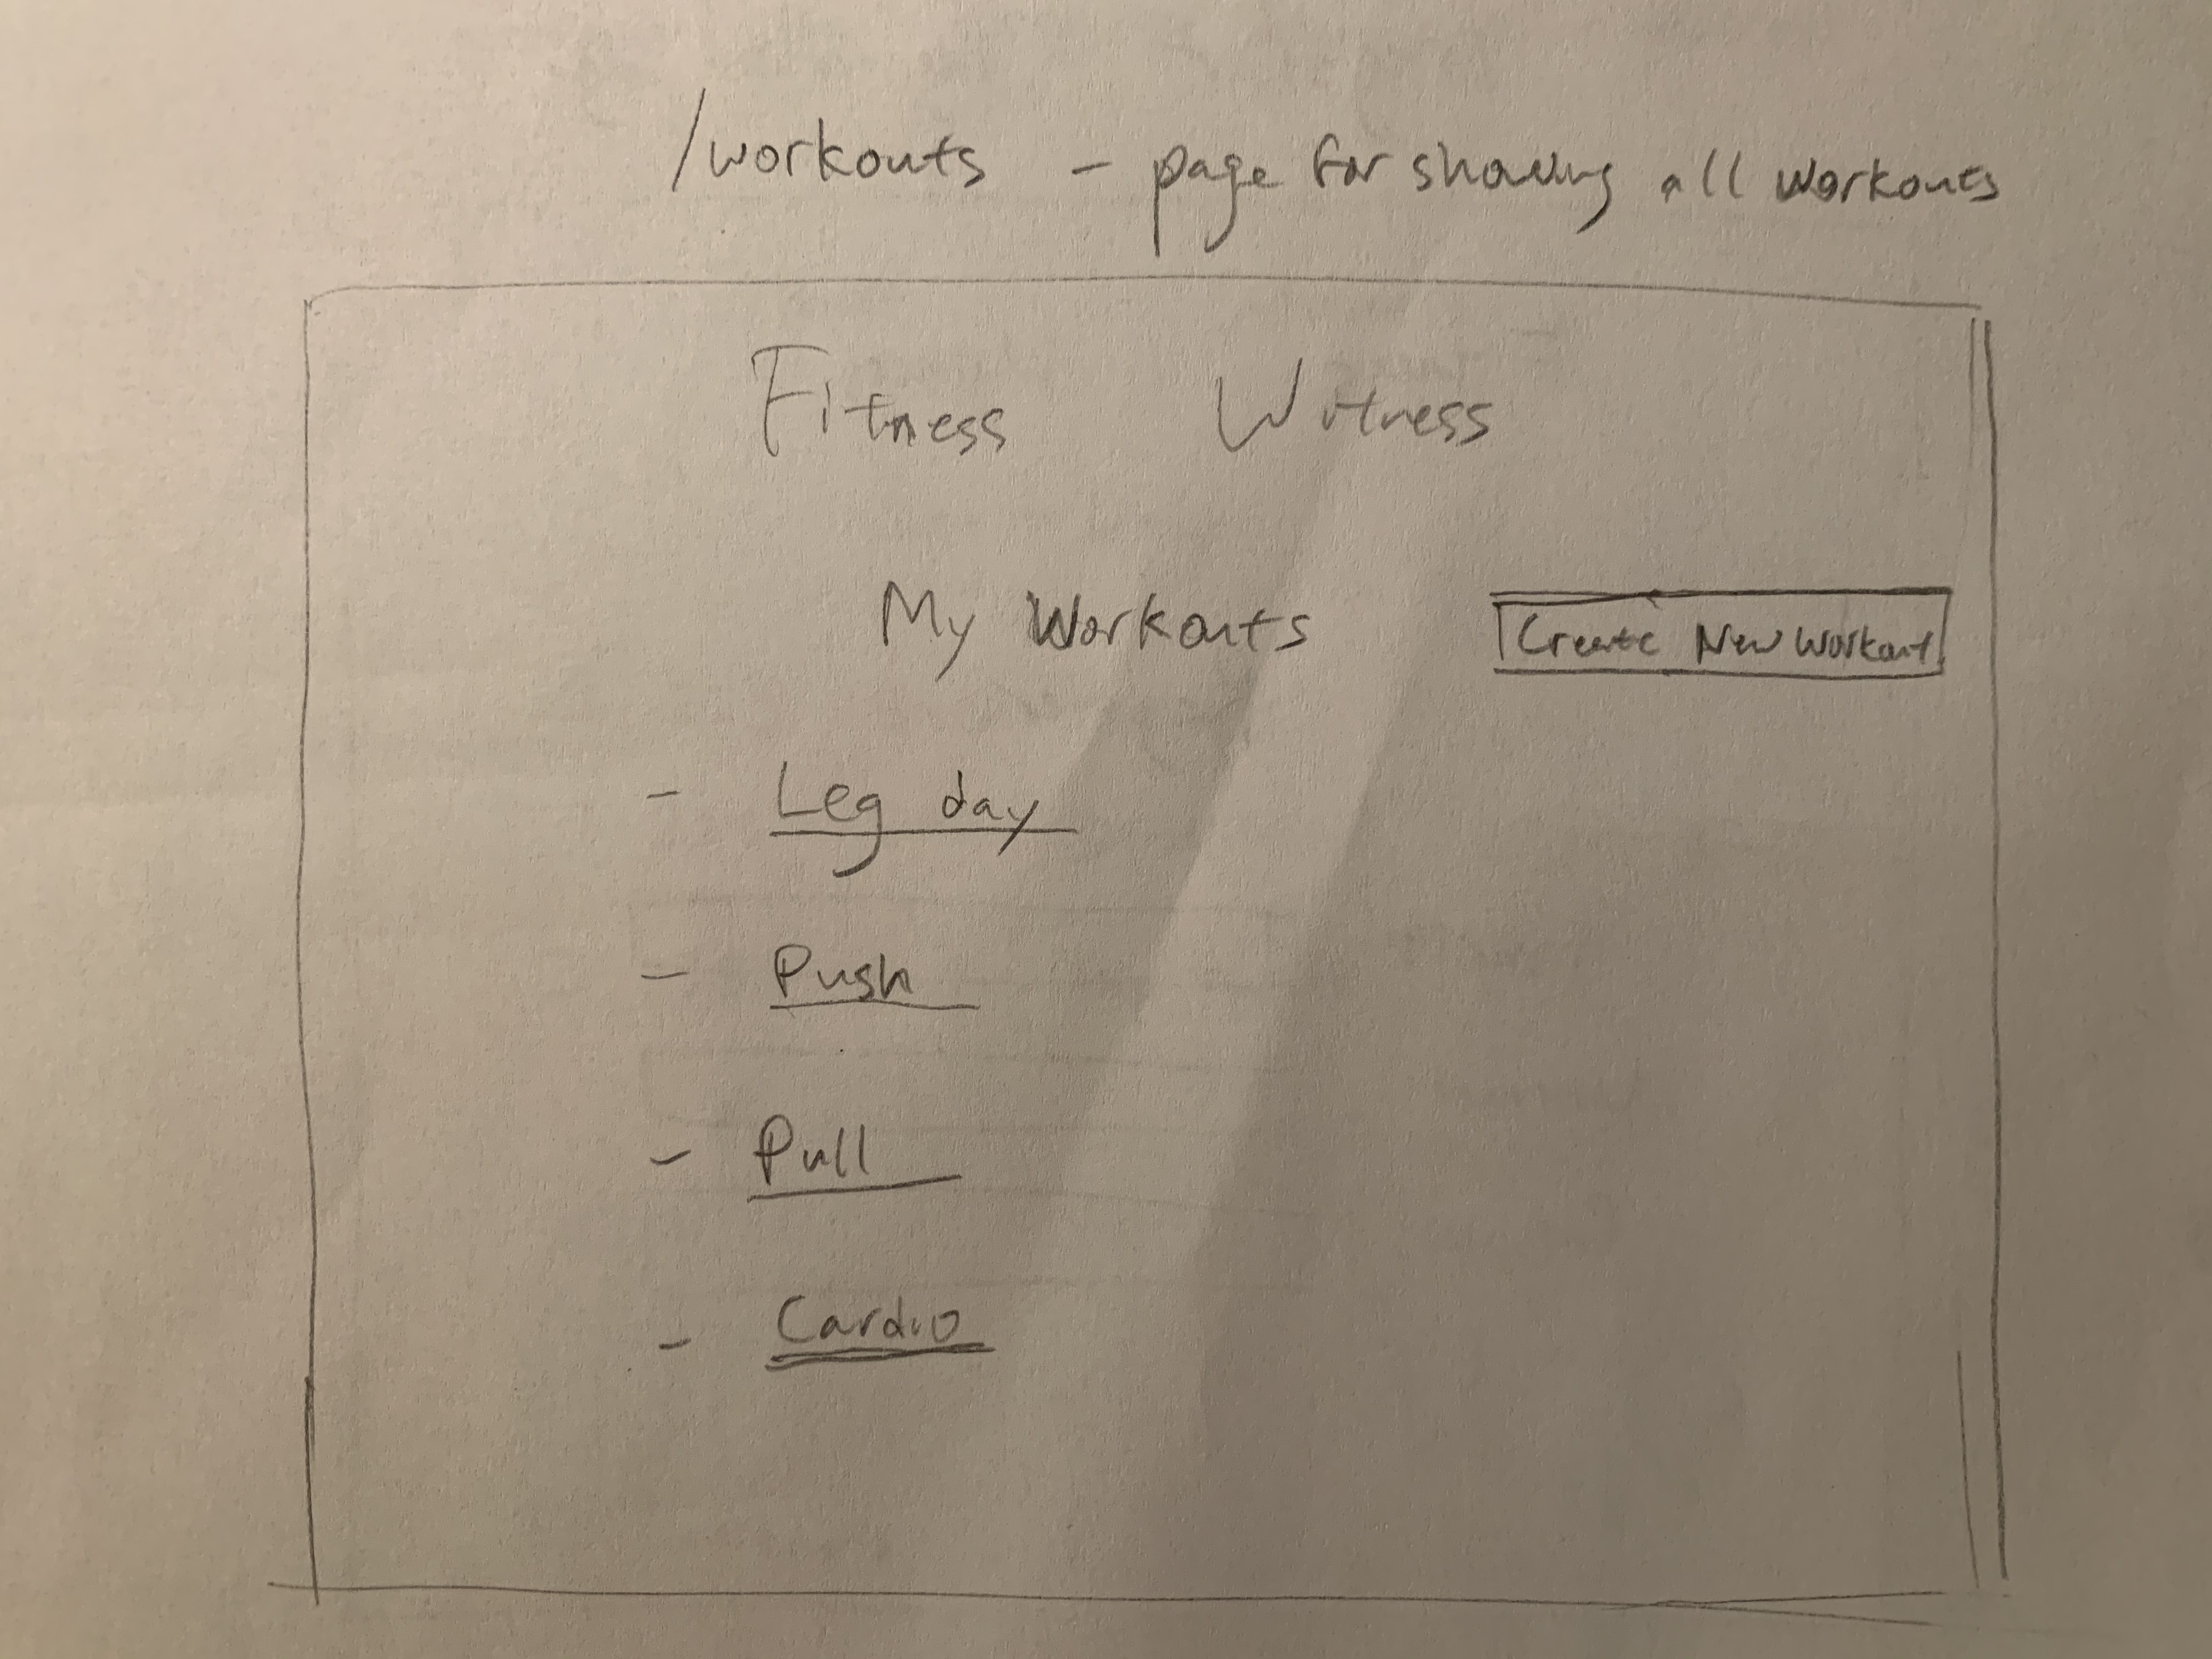 /workouts - page for showing all workouts
Fitness Witness
My Workouts
Create New Workout
- Leg day
- Push
- Pull
- Cardio